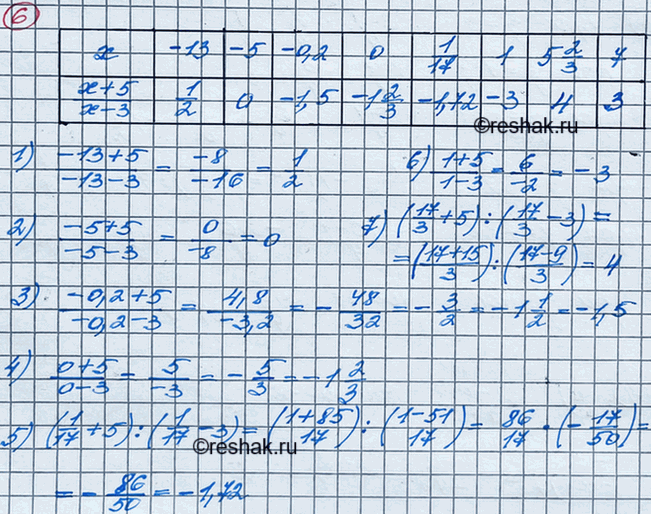 6
x | -13 | -5 | -0,2 | 0 | 1/17 | 1 | 5 2/3 | 7
x+5/x-3 | 1/2 | 0 | -1,5 | -1 2/3 | -1,72 | -3 | 4 | 3
©reshak.ru
1) -13+5/-13-3 = -8/-16 = 1/2
6) 1+5/1-3 = 6/-2 = -3
2) -5+5/-5-3 = 0/-8 = 0
7) (17/3 + 5) : (17/3 - 3) =
= (17+15/3) : (17-9/3) = 4
3) -0,2+5/-0,2-3 = 4,8/-3,2 = - 48/32 = - 3/2 = -1 1/2 = -1,5
4) 0+5/0-3 = 5/-3 = - 5/3 = -1 2/3
5) (1/17 + 5) : (1/17 - 3) = (1+85/17) : (1-51/17) = 86/17 · (- 17/50) =
©reshak.ru
= - 86/50 = -1,72